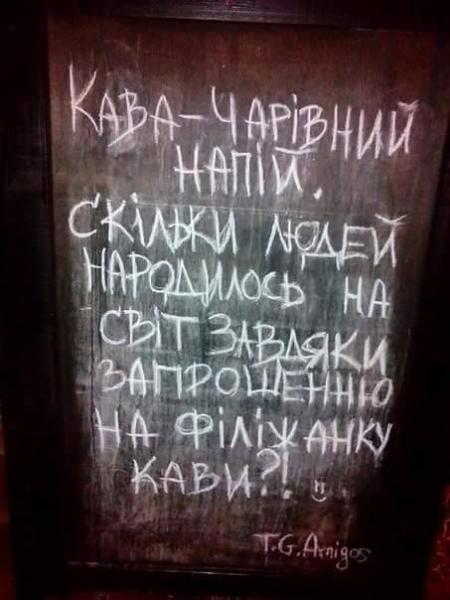 КАВА-ЧАРІВНИЙ
НАПІЙ.
СКІЛЬКИ ЛЮДЕЙ
НАРОДИЛОСЬ НА
СВІТ ЗАВДЯКИ
ЗАПРОШЕННЮ
НА ФІЛІЖАНКУ
КАВИ?!
T.G.Amigos